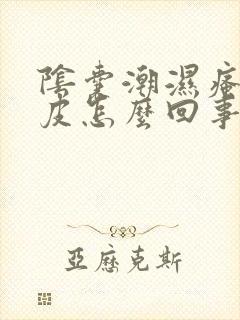 陰囊潮濕瘙
皮怎麼回事
亞歷克斯